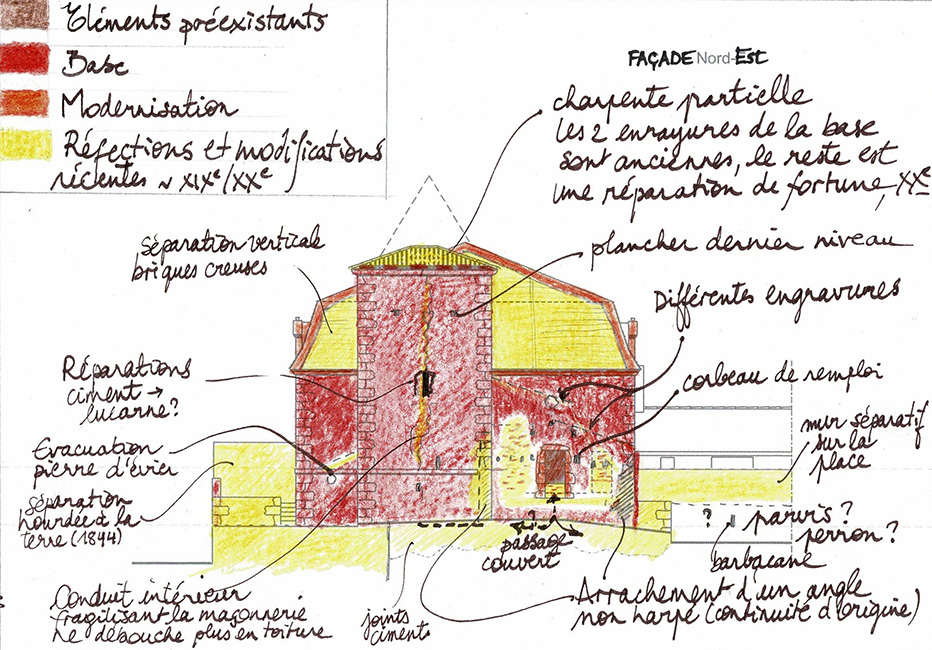 Eléments préexistants
Base
Modernisation
Réfections et modifications
récentes ~ XIXe/XXe
FAÇADE Nord-Est
charpente partielle
les 2 enrayures de la base
sont anciennes, le reste est
une réparation de fortune, XXe
séparation verticale
briques creuses
plancher dernier niveau
Différentes engravures
Réparations
ciment →
lucarne?
corbeau de remploi
mur séparatif
sur la
place
Evacuation
pierre d'évier
séparation
hourdée à la
terre (1844)
? parvis?
perron?
barbacane
passage
couvert
Conduit intérieur
fragilisant la maçonnerie
Ne débouche plus en toiture
joints
ciments
Arrachement d'un angle
non harpé (continuité d'origine)